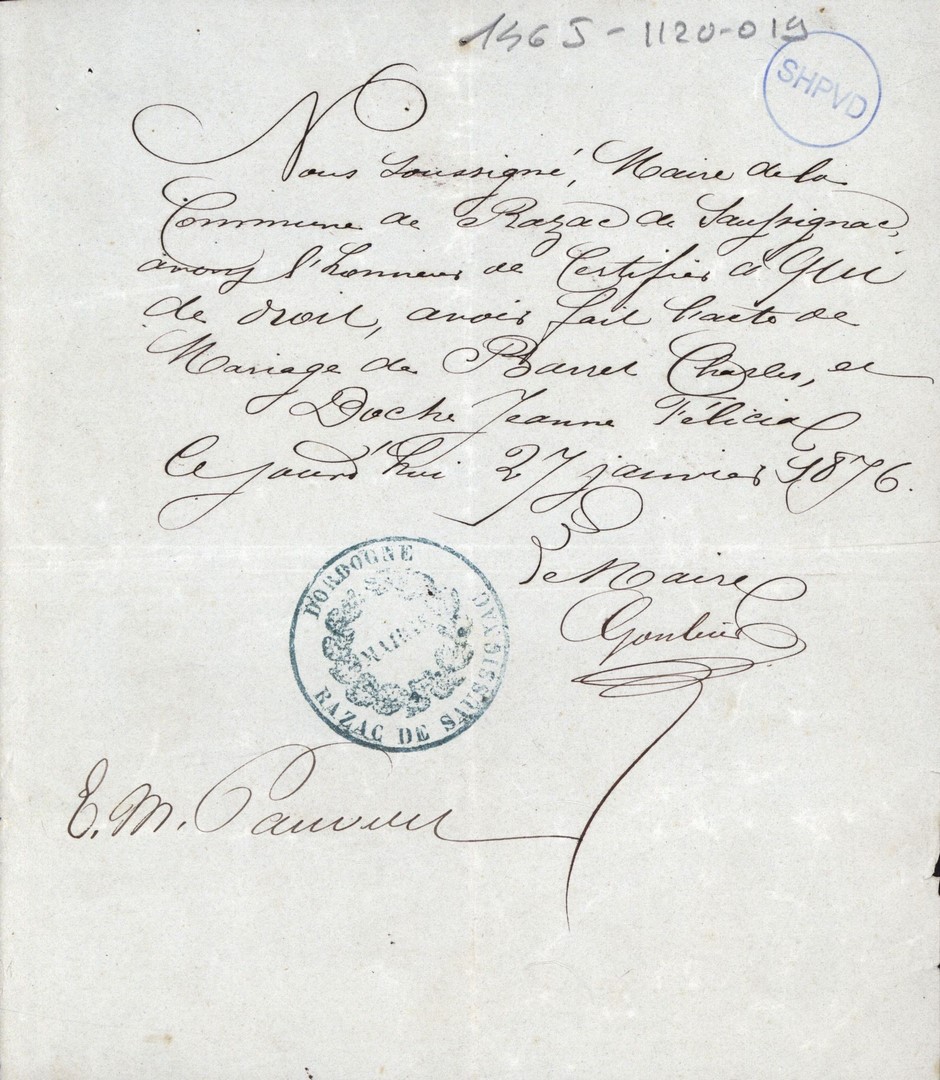 1465-1120-019
SHPVD
Nous soussigné, Maire de la
Commune de Razac de Saussignac,
avons l'honneur de Certifier à Qui
de droit, avoir fait l'acte de
Mariage de Barret Charles, et
Doche Jeanne Félicia
Ce jourd'hui 27 janvier 1876.
Le Maire
DORDOGNE
MAIRIE
RAZAC DE SAUSSIGNAC
E. M.